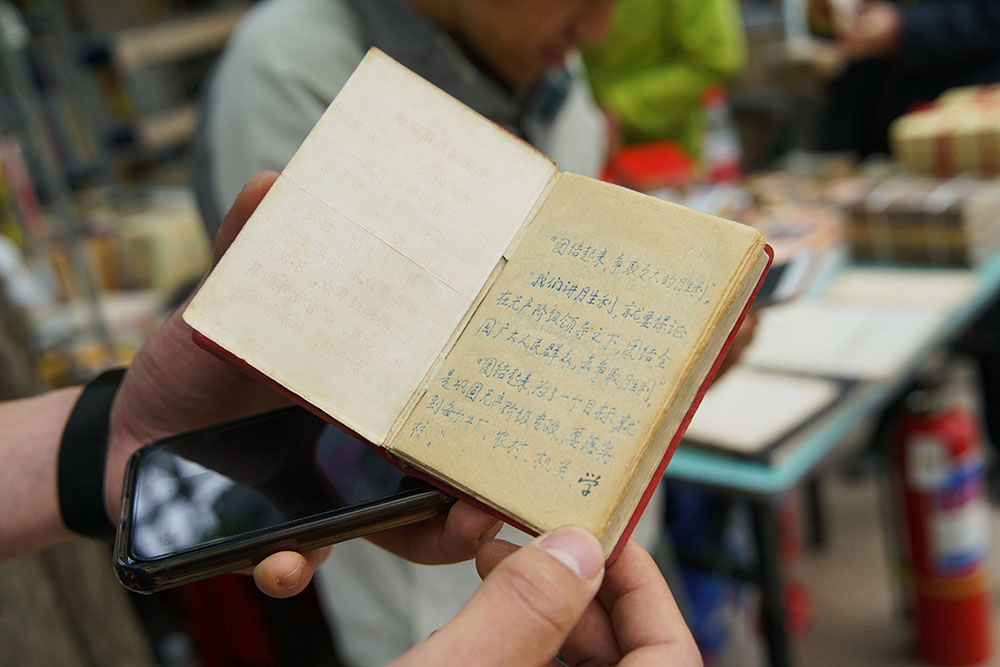 “团结起来，争取更大的胜利”。
“我们讲胜利，就要保证
在无产阶级领导之下，团结全
国广大人民群众，去争取胜利”
“团结起来，为了一个目标，就
是巩固无产阶级专政，要落实
到每个工厂、农村、机关、学
校。”